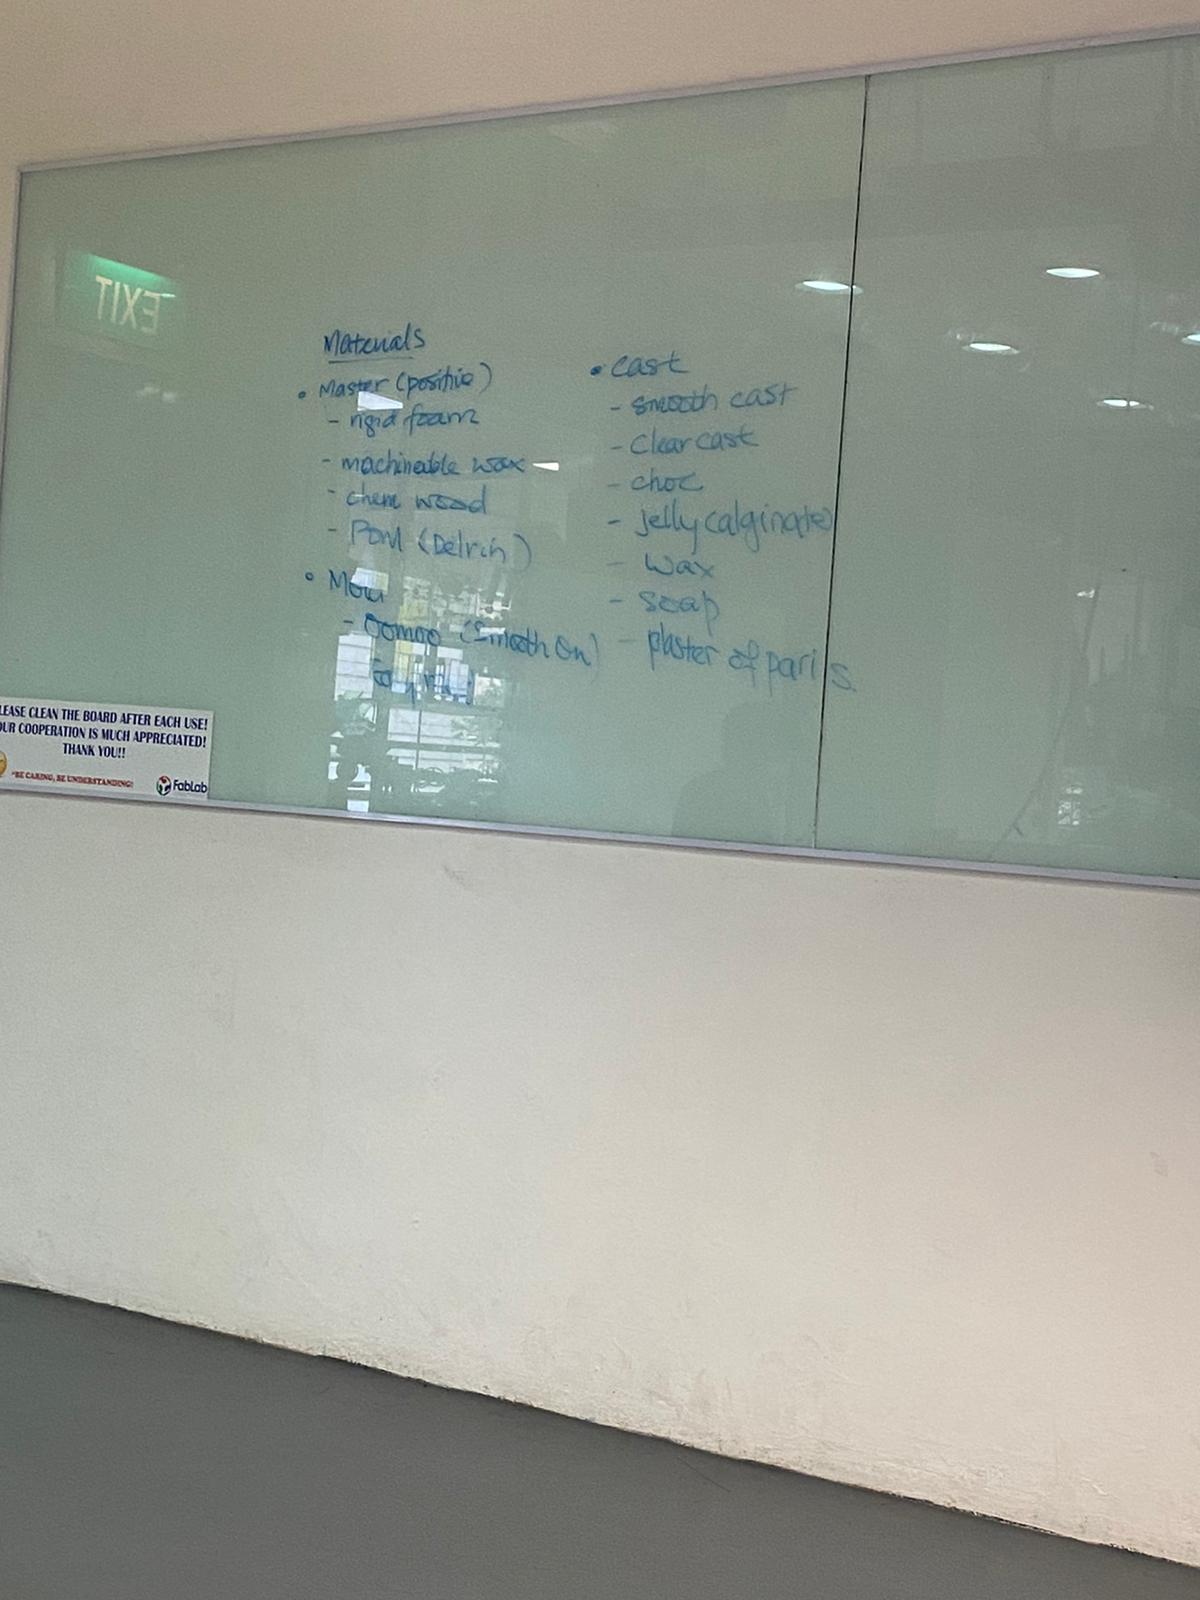 EXIT
Materials
• Master (positive)
- rigid foam
- machineable wax
- chem wood
- POM (Delrin)
• Mold
- Oomoo (Smooth On)
• cast
- smooth cast
- Clear cast
- choc
- jelly (alginate)
- wax
- soap
- plaster of paris.
LEASE CLEAN THE BOARD AFTER EACH USE!
OUR COOPERATION IS MUCH APPRECIATED!
THANK YOU!!
"BE CARING, BE UNDERSTANDING!
FabLab